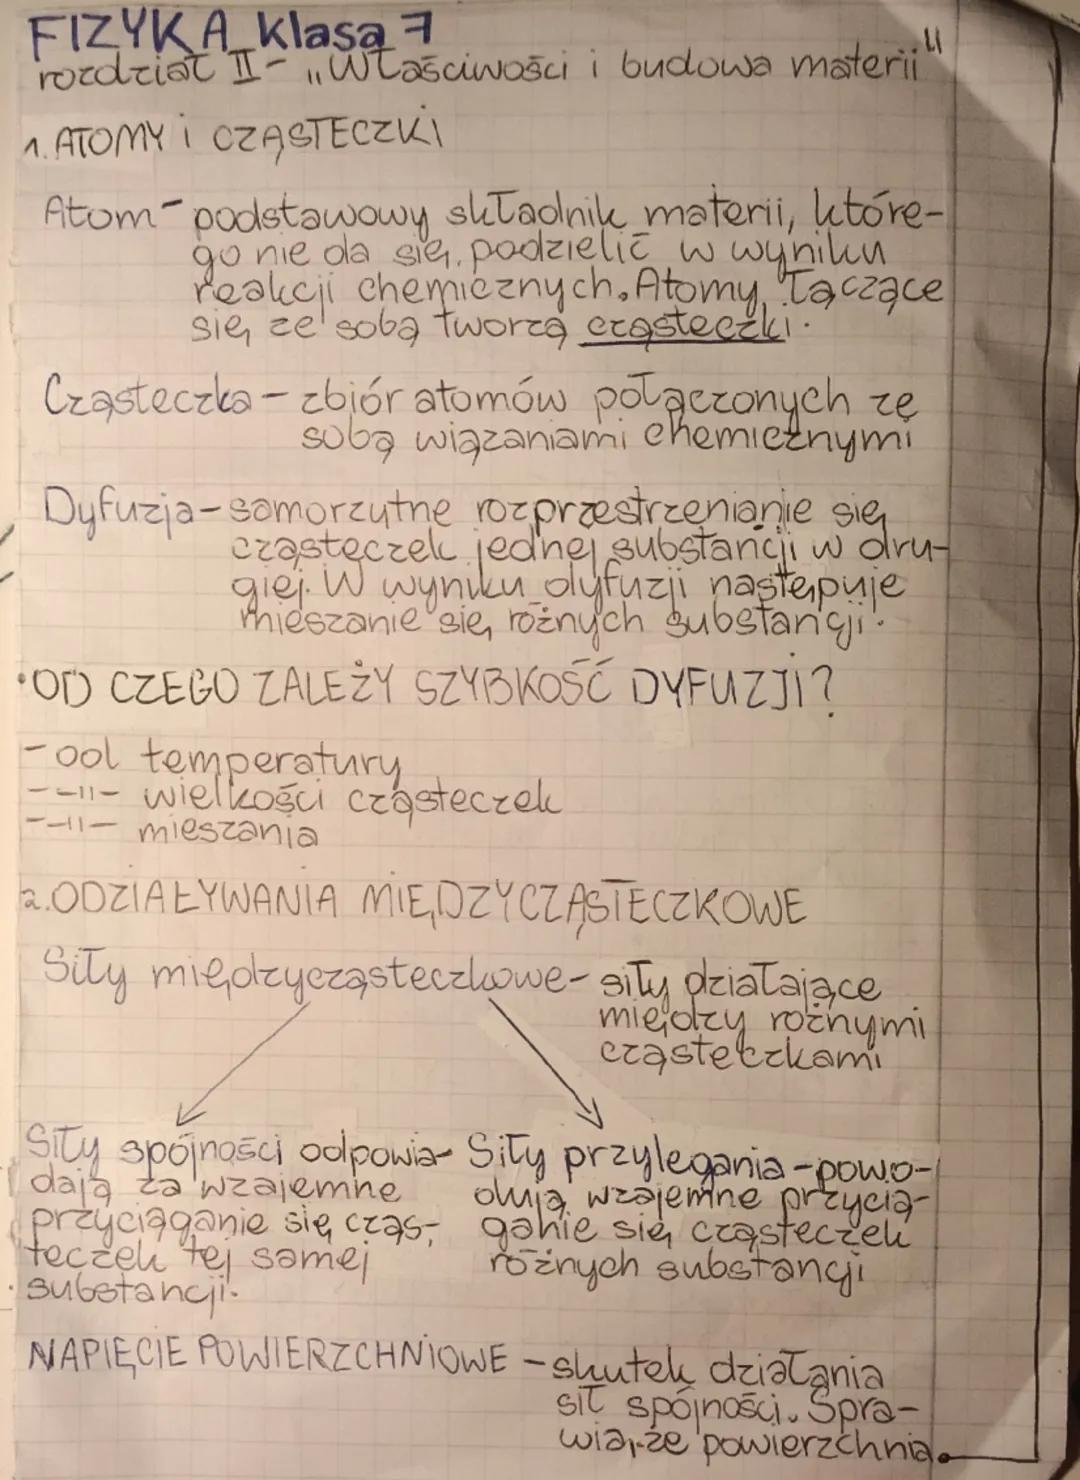 FIZYKA klasa 7
rozdział II - „Właściwości i budowa materii"
1. ATOMY i CZĄSTECZKI
Atom - podstawowy składnik materii, które-
go nie da się podzielić w wyniku
reakcji chemicznych. Atomy łączące
się ze sobą tworzą cząsteczki.
Cząsteczka - zbiór atomów połączonych ze
sobą wiązaniami chemicznymi
Dyfuzja - samorzutne rozprzestrzenianie się
cząsteczek jednej substancji w dru-
giej. W wyniku dyfuzji następuje
mieszanie się różnych substancji.
• OD CZEGO ZALEŻY SZYBKOŚĆ DYFUZJI?
- od temperatury
- -11- wielkości cząsteczek
- -11- mieszania
2. ODZIAŁYWANIA MIĘDZYCZĄSTECZKOWE
Siły międzycząsteczkowe - siły działające
między różnymi
cząsteczkami
Siły spójności odpowia-
dają za wzajemne
przyciąganie się cząs-
teczek tej samej
substancji.
Siły przylegania - powo-
dują wzajemne przycią-
ganie się cząsteczek
różnych substancji
NAPIĘCIE POWIERZCHNIOWE - skutek działania
sił spójności. Spra-
wia, że powierzchnia